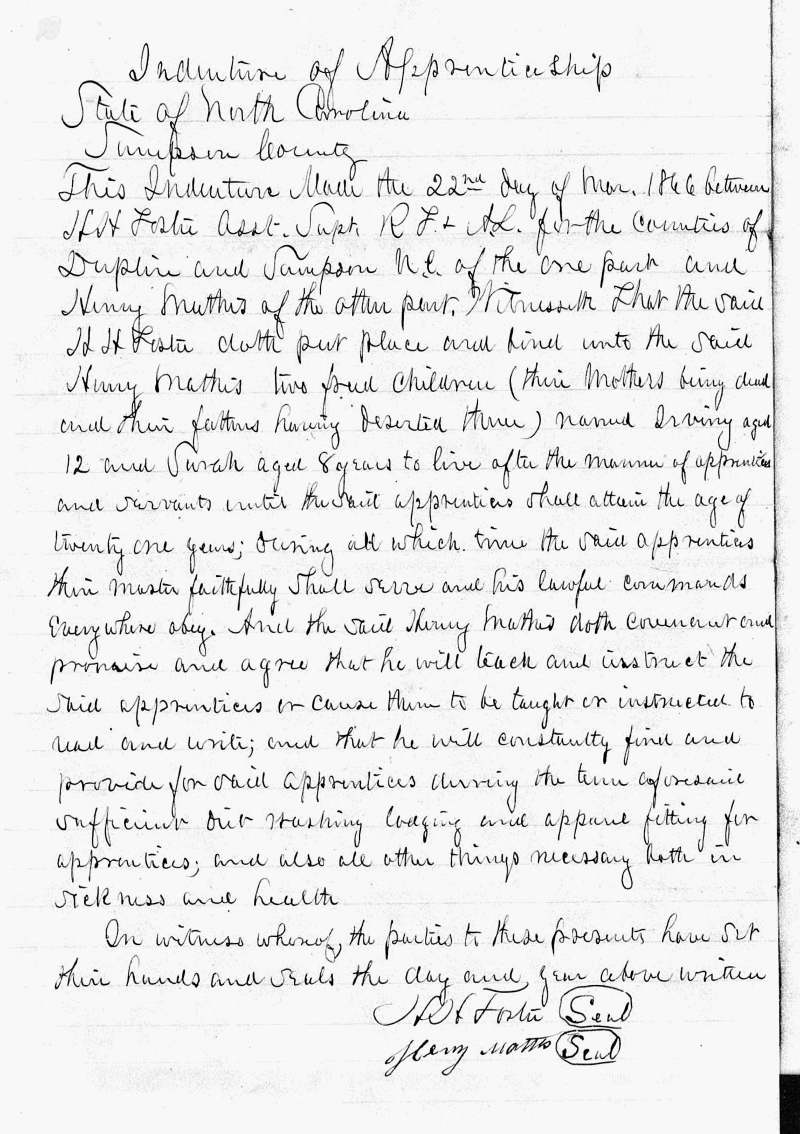 Indenture of Apprenticeship
State of North Carolina
Sampson County
This Indenture Made the 22nd day of Mar. 1866 between
H H Foster Asst. Supt. R F. & A.L. for the Counties of
Duplin and Sampson N.C. of the one part and
Henry Mathis of the other part. Witnesseth That the said
H H Foster doth put place and bind unto the said
Henry Mathis two freed children (their Mothers being dead
and their fathers having deserted them) named Irving aged
12 and Surah aged 8 years to live after the manner of apprentices
and servants until the said apprentices shall attain the age of
twenty one years; during all which time the said apprentices
their master faithfully shall serve and his lawful commands
Everywhere obey. And the said Henry Mathis doth covenant and
promise and agree that he will teach and instruct the
said apprentices or cause them to be taught or instructed to
read and write; and that he will constantly find and
provide for said apprentices during the term aforesaid
sufficient diet washing lodging and apparel fitting for
apprentices; and also all other things necessary both in
sickness and health
In witness whereof, the parties to these presents have set
their hands and seals the day and year above written
H H Foster Seal
Henry Mathis Seal